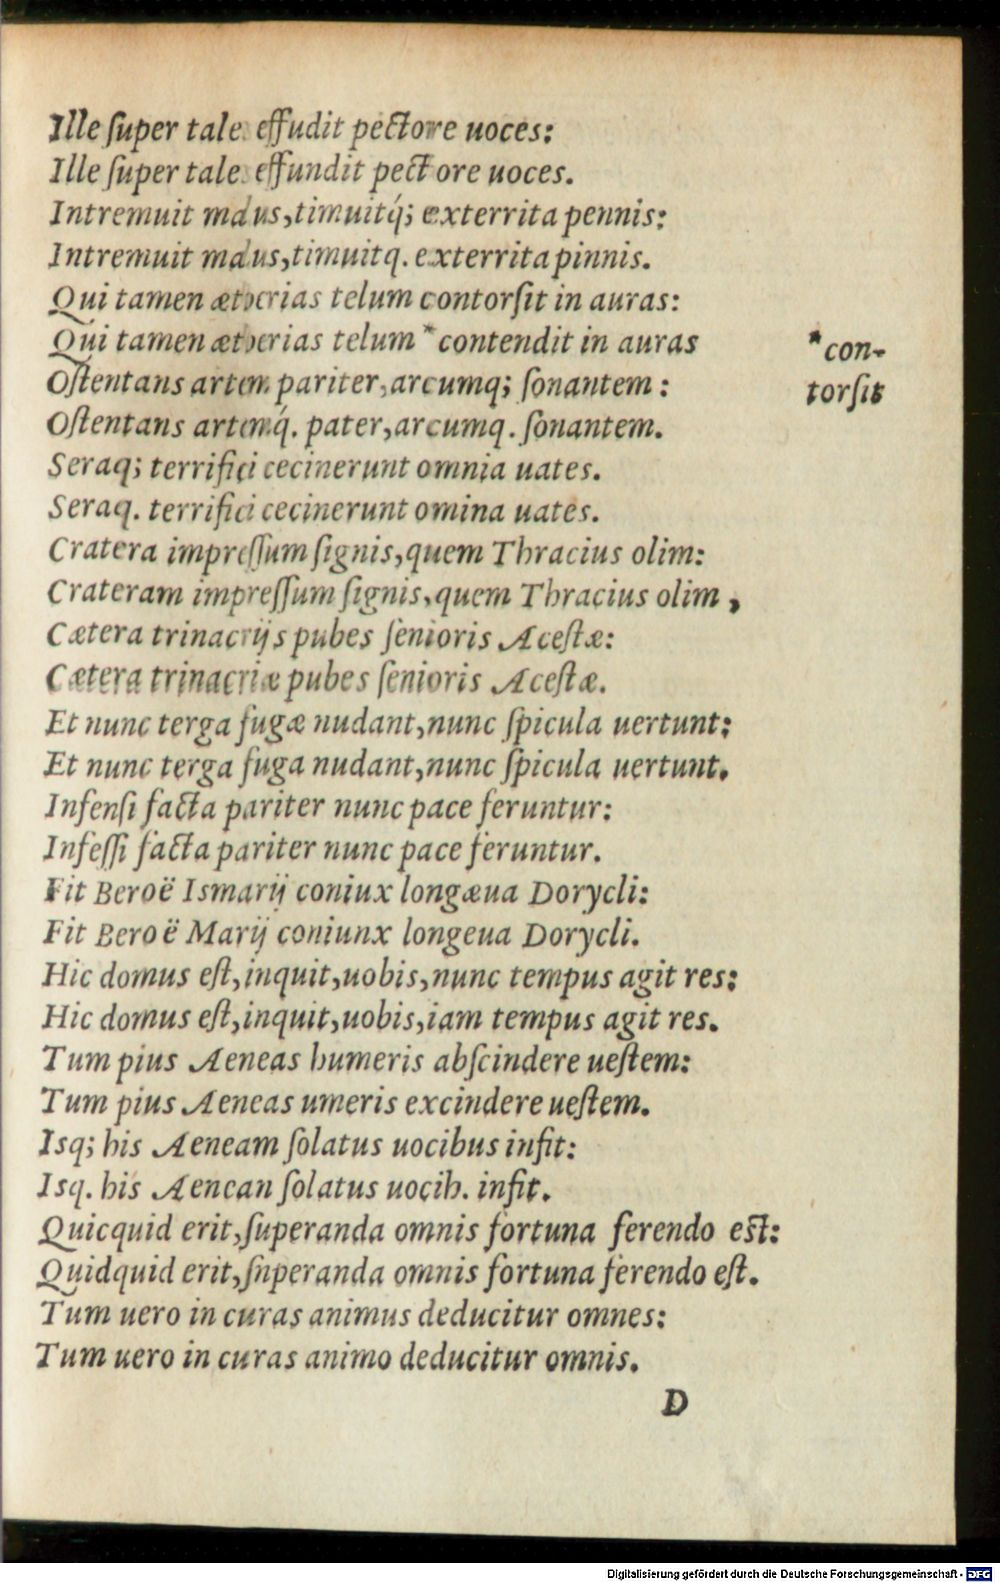 Ille ſuper tale effudit pectore uoces:
Ille ſuper tale effundit pectore uoces.
Intremuit malus, timuitq́; exterrita pennis:
Intremuit malus, timuitq. exterrita pinnis.
Qui tamen ætherias telum contorſit in auras:
Qui tamen ætherias telum * contendit in auras
* con-
torſit
Oſtentans artem pariter, arcumq; ſonantem:
Oſtentans artemq́. pater, arcumq. ſonantem.
Seraq; terrifici cecinerunt omnia uates.
Seraq. terrifici cecinerunt omina uates.
Cratera impreſſum ſignis, quem Thracius olim:
Crateram impreſſum ſignis, quem Thracius olim,
Cætera trinacrijs pubes ſenioris Aceſtæ:
Cætera trinacriæ pubes ſenioris Aceſtæ.
Et nunc terga fugæ nudant, nunc ſpicula uertunt:
Et nunc terga fuga nudant, nunc ſpicula uertunt.
Infenſi facta pariter nunc pace feruntur:
Infeſſi facta pariter nunc pace feruntur.
Fit Beroë Ismarij coniux longæua Dorycli:
Fit Beroë Marij coniunx longeua Dorycli.
Hic domus eſt, inquit, uobis, nunc tempus agit res:
Hic domus eſt, inquit, uobis, iam tempus agit res.
Tum pius Aeneas humeris abſcindere ueſtem:
Tum pius Aeneas umeris excindere ueſtem.
Isq; his Aeneam ſolatus uocibus infit:
Isq. his Aenean ſolatus uocib. infit.
Quicquid erit, ſuperanda omnis fortuna ferendo eſt:
Quidquid erit, ſnperanda omnis fortuna ferendo eſt.
Tum uero in curas animus deducitur omnes:
Tum uero in curas animo deducitur omnis.
D
Digitalisierung gefördert durch die Deutsche Forschungsgemeinschaft - DFG